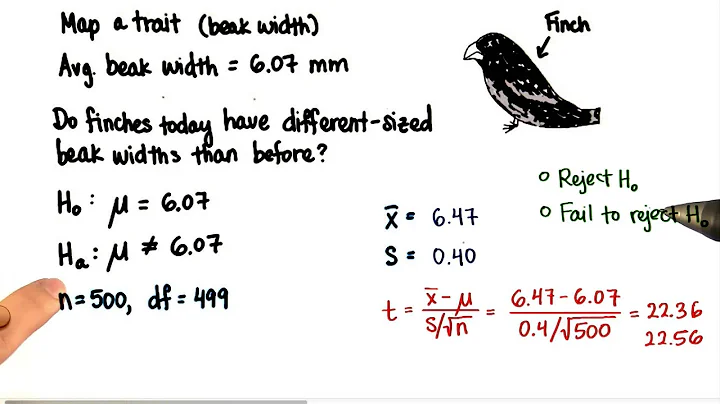 Map a trait (beak width)
Avg. beak width = 6.07 mm
Finch
Do finches today have different-sized
beak widths than before?
H₀: μ = 6.07
Hₐ: μ ≠ 6.07
n = 500, df = 499
x̄ = 6.47
S = 0.40
○ Reject H₀
○ Fail to reject H₀
t = (x̄ - μ)/(S/√n) = (6.47 - 6.07)/(0.4/√500) = 22.36
22.56